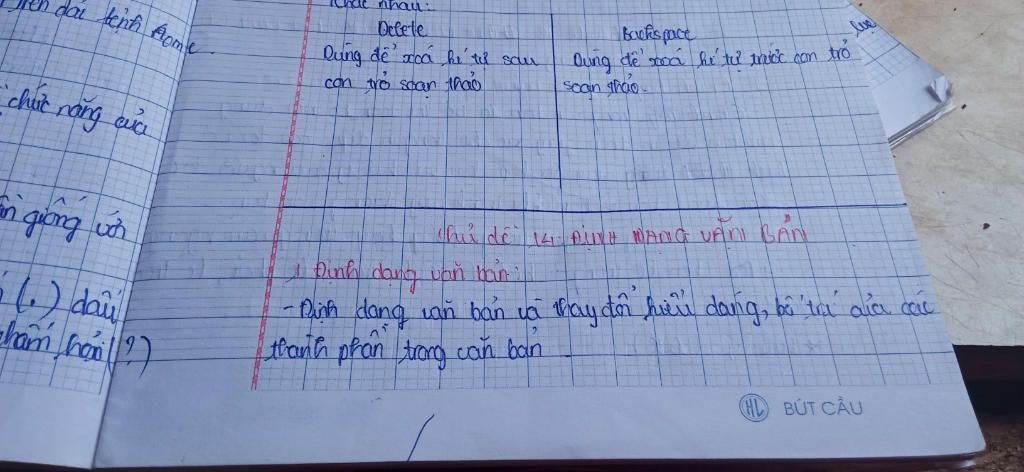 tình Home
chức năng của
giống với
(.) dấu
hỏi (?)
khác nhau:
Delete
Backspace
Dùng để xoá kí tự sau
con trỏ soạn thảo
Dùng để xoá kí tự trước con trỏ
soạn thảo.
Chủ đề 14: ĐỊNH DẠNG VĂN BẢN
1 Định dạng văn bản:
- Định dạng văn bản và thay đổi kiểu dáng, bố trí của các
thành phần trong văn bản
HL BÚT CẦU